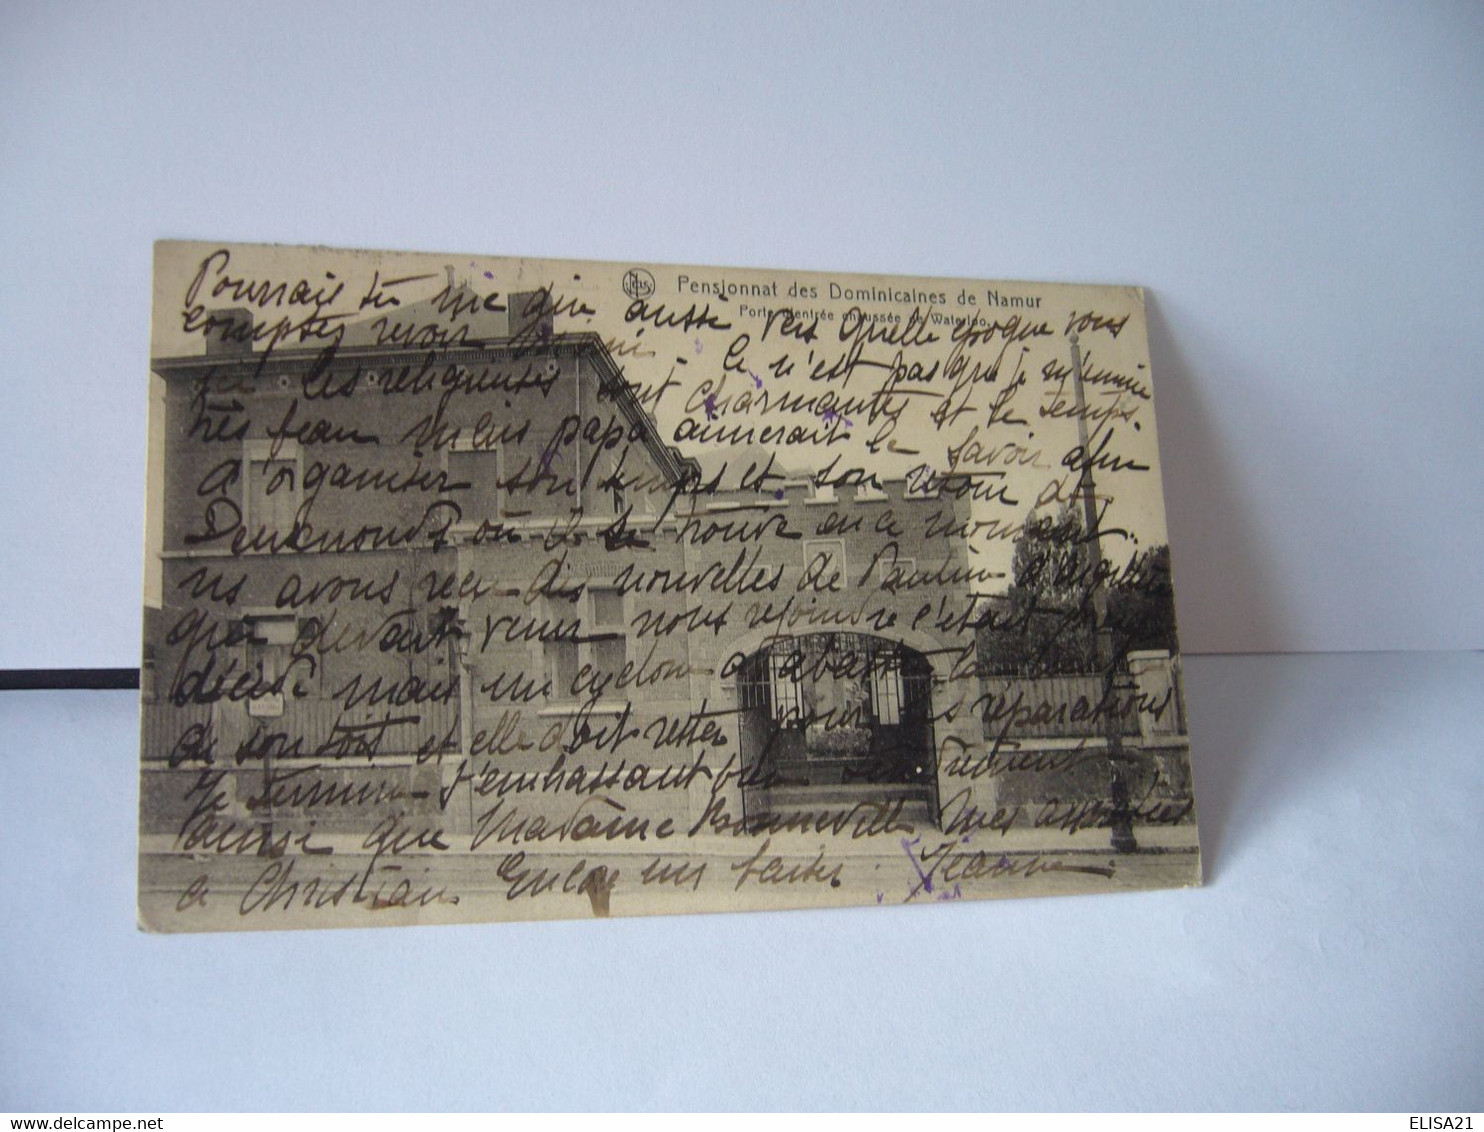 Pensionnat des Dominicaines de Namur
Porte d'entrée chaussée de Waterloo.
Pourrais tu me dire aussi vers quelle époque vous
comptez revoir Ce n'est pas que je m'ennuie
ici les religieuses sont charmantes et le temps
très beau mais papa aimerait le savoir afin
d'organiser son temps et son retour de
où il se trouve en ce moment.
ns avons reçu des nouvelles de Pauline
qui devait venir nous rejoindre c'était presque
décidé mais un cyclone a abattu
de son toit et elle doit rester pour les réparations
Je termine t'embrassant bien tendrement
ainsi que Madame Bonneville Mes amitiés
a Christian. Encore un baiser. Jeanne
ELISA21